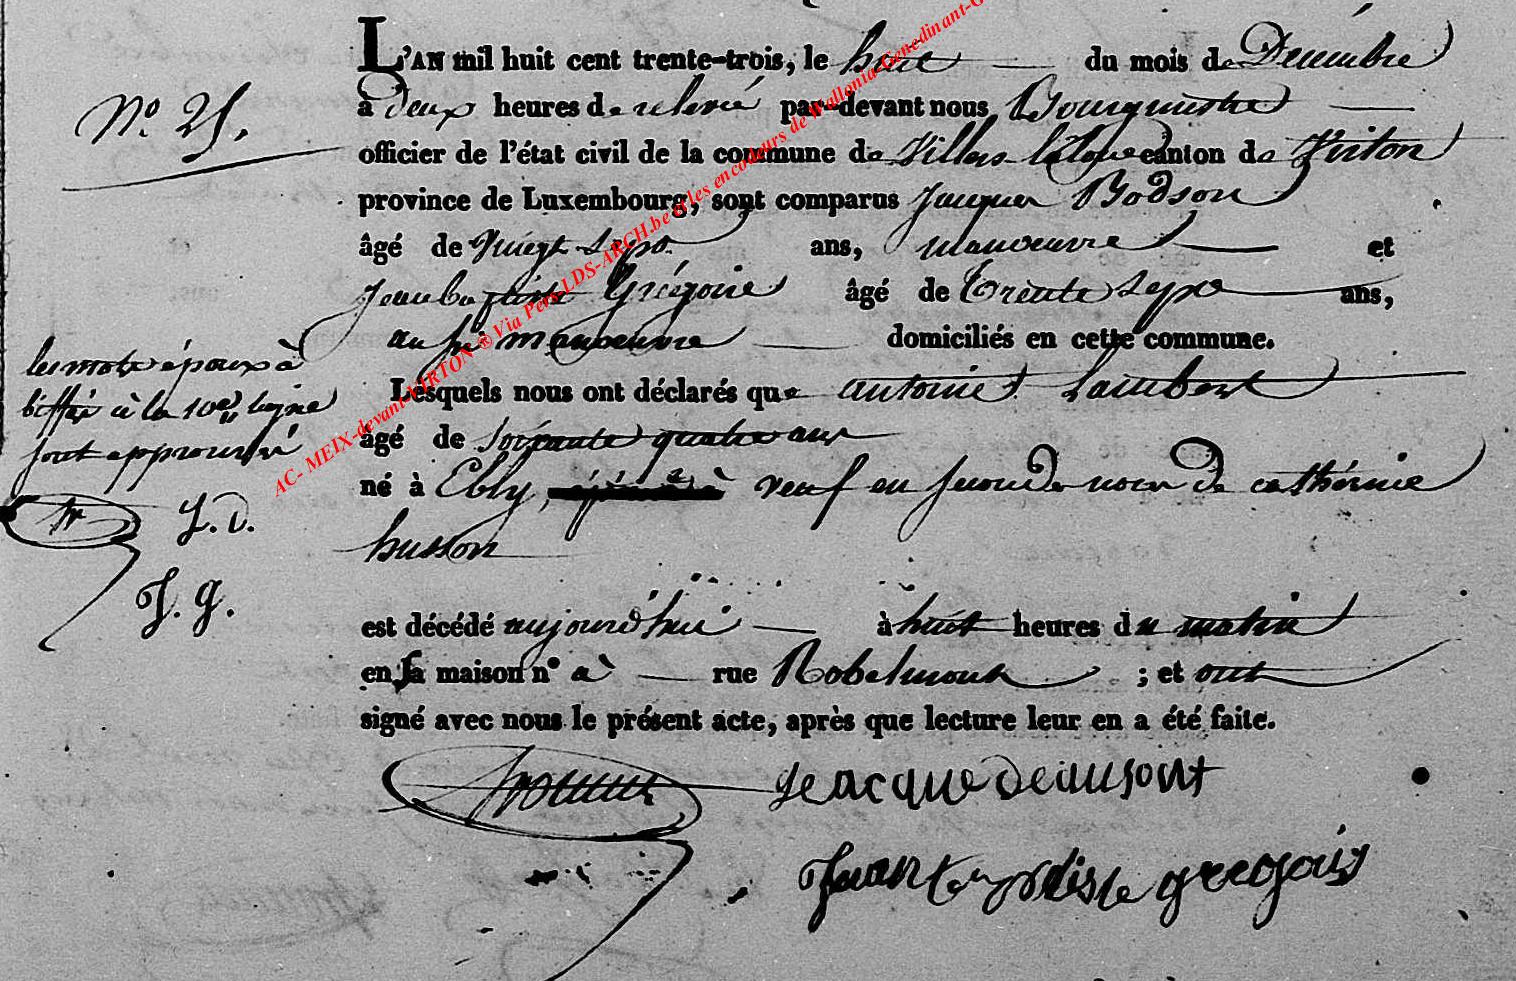 L'AN mil huit cent trente-trois, le huit du mois de Décembre
N.o 25.
à deux heures de relevé par-devant nous Bourguestre
officier de l'état civil de la commune de Villers laloue canton de Virton
province de Luxembourg, sont comparus Jacques Bodson
âgé de Vingt sept ans, manoeuvre et
Jean baptiste Grégoire âgé de trente sept ans,
aussi manoeuvre domiciliés en cette commune.
les mots époux à
biffés à la 10e ligne
sont approuvés
J. d.
J. g.
Lesquels nous ont déclarés que antoine Lambert
âgé de soixante quatre ans
né à Ebly, veuf en seconde noce de cathérine
husson
est décédé aujourd'hui à huit heures du matin
en sa maison n° à rue Robelmont ; et ont
signé avec nous le présent acte, après que lecture leur en a été faite.
Jeacque Deausont
Jean baptiste gregoir
AC- MEIX-devant-VIRTON ® Via Pers-LDS-ARCH.be et les encodeurs de Wallonia-Genedinant-G